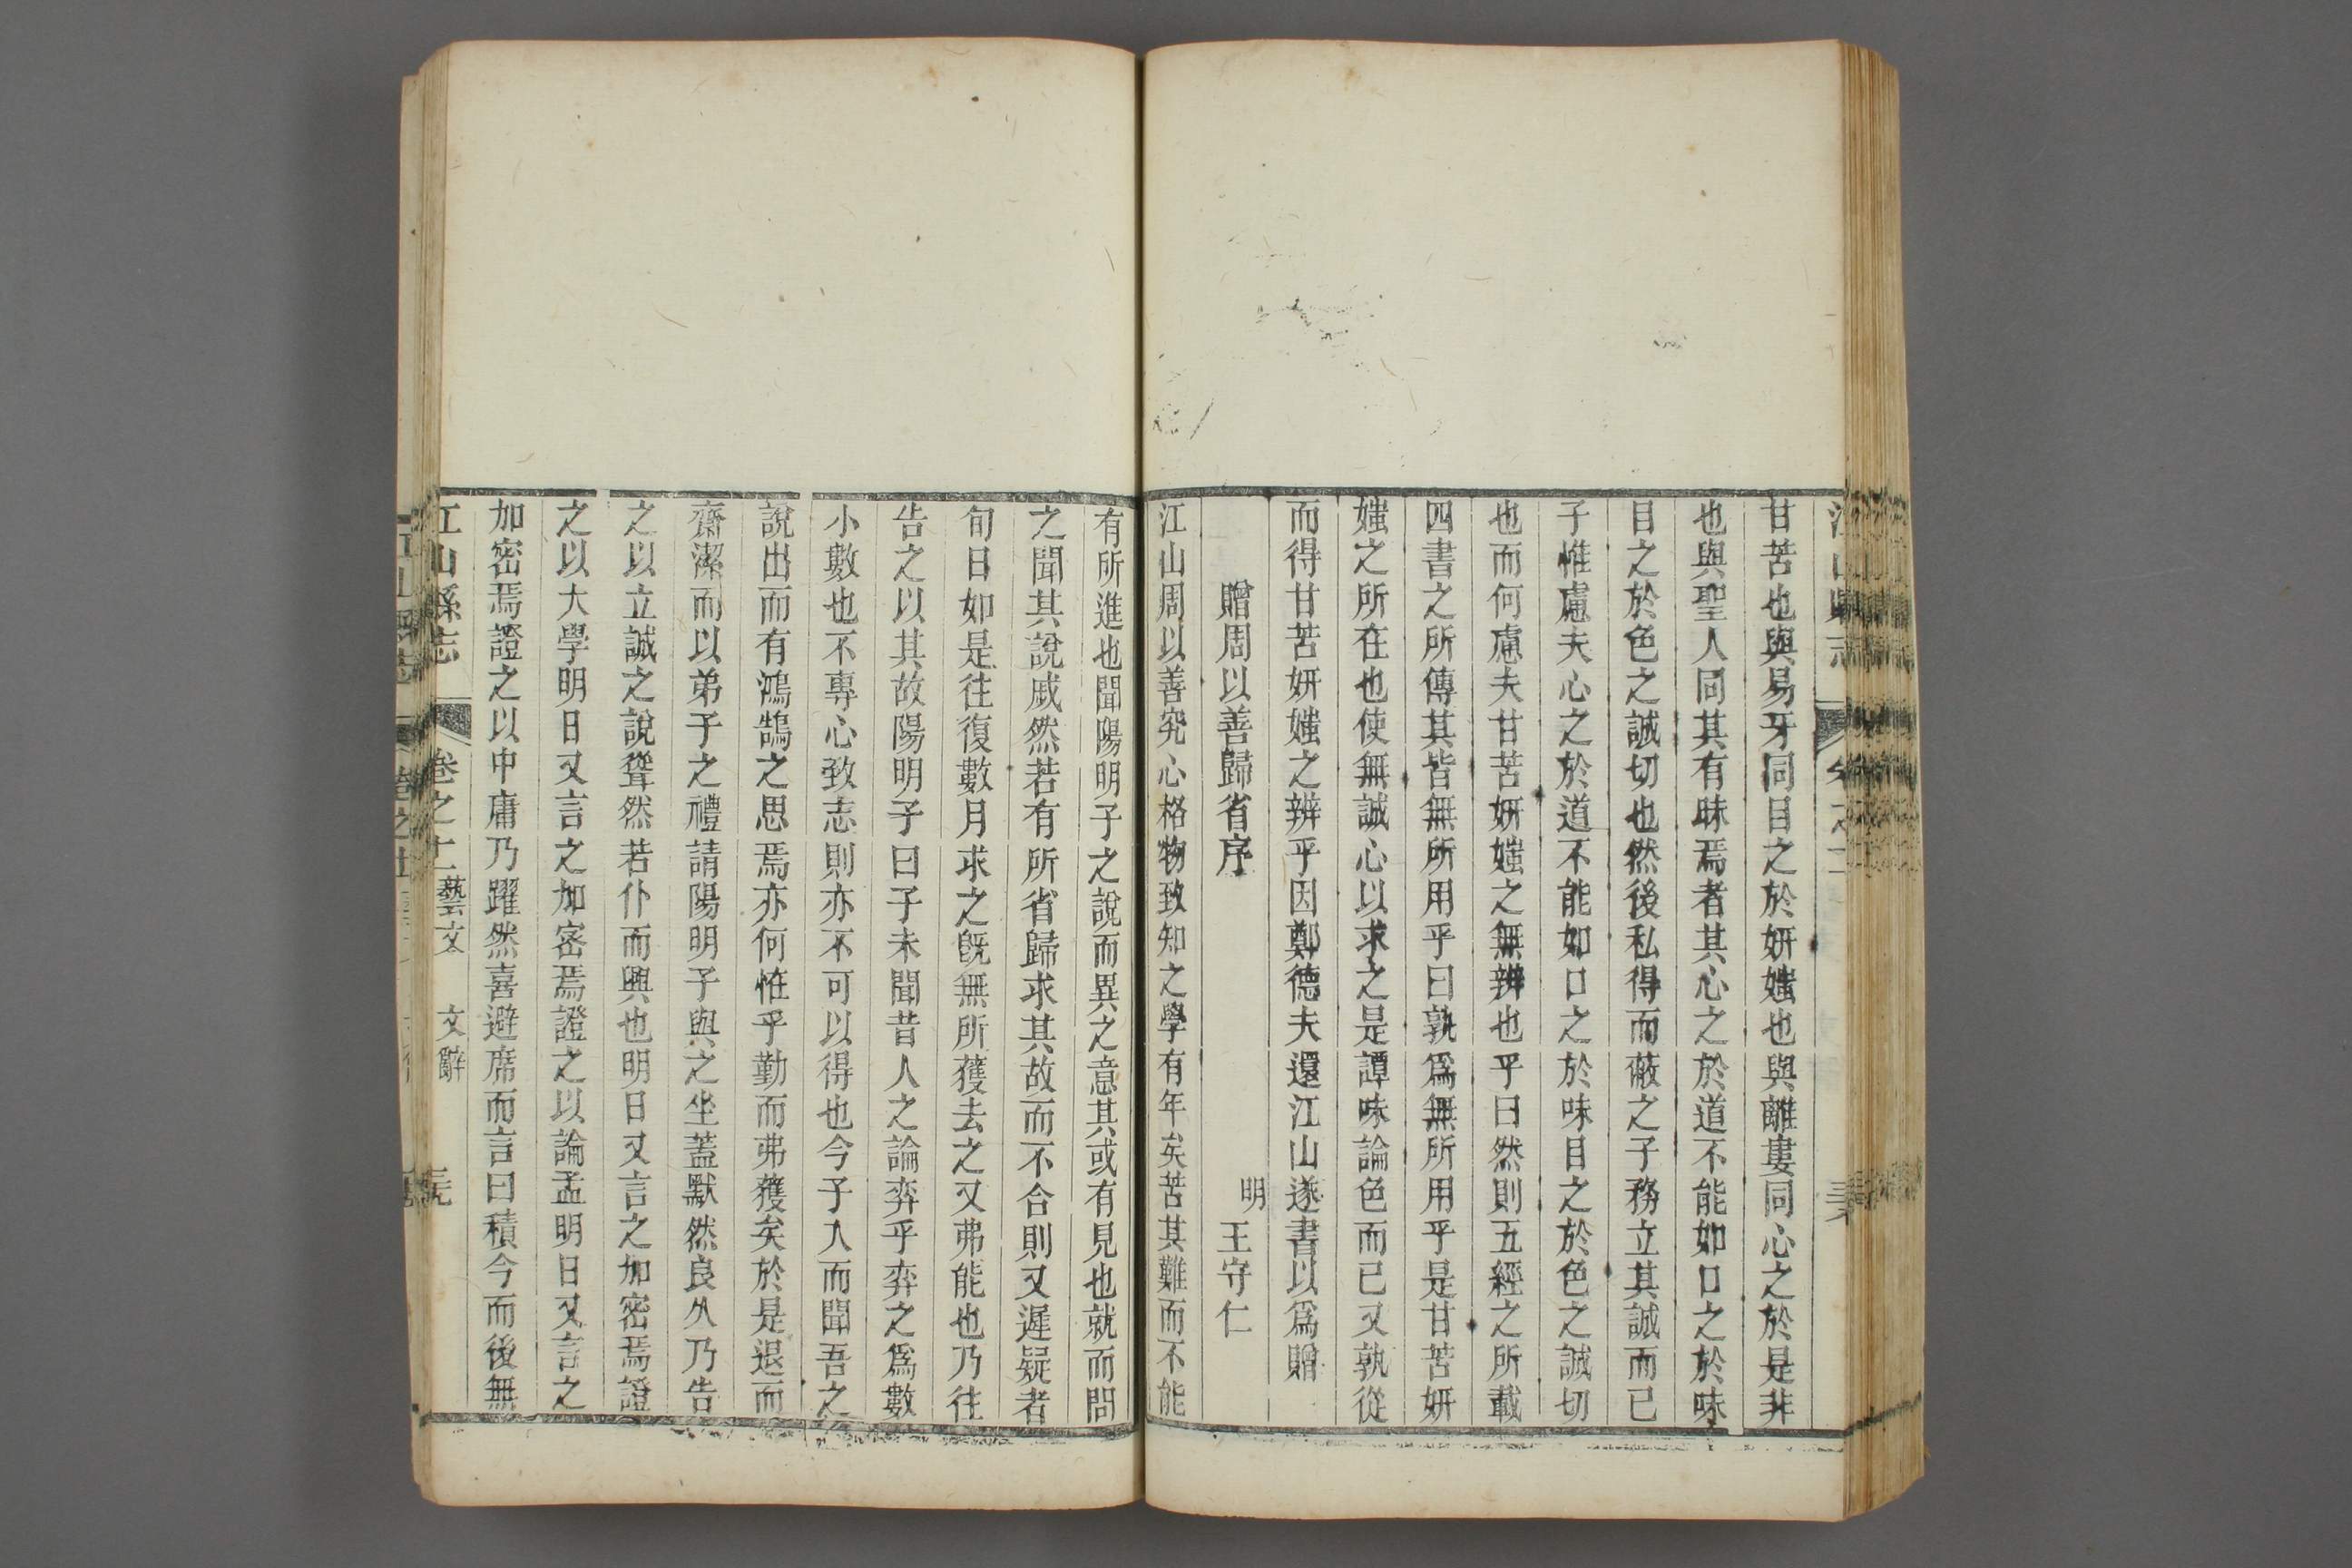 甘苦也與易牙同目之於妍媸也與離婁同心之於是非
也與聖人同其有昧焉者其心之於道不能如口之於味
目之於色之誠切也然後私得而蔽之子務立其誠而已
子惟慮夫心之於道不能如口之於味目之於色之誠切
也而何慮夫甘苦妍媸之無辨也乎曰然則五經之所載
四書之所傳其皆無所用乎曰孰爲無所用乎是甘苦妍
媸之所在也使無誠心以求之是譚味論色而已又孰從
而得甘苦妍媸之辨乎因鄭德夫還江山遂書以爲贈
贈周以善歸省序 明 王守仁
江山周以善究心格物致知之學有年矣苦其難而不能
有所進也聞陽明子之說而異之意其或有見也就而問
之聞其說戚然若有所省歸求其故而不合則又遲疑者
旬日如是往復數月求之旣無所獲去之又弗能也乃往
告之以其故陽明子曰子未聞昔人之論弈乎弈之爲數
小數也不專心致志則亦不可以得也今子入而聞吾之
說出而有鴻鵠之思焉亦何惟乎勤而弗獲矣於是退而
齋潔而以弟子之禮請陽明子與之坐蓋默然良久乃告
之以立誠之說聳然若仆而興也明日又言之加密焉證
之以大學明日又言之加密焉證之以論孟明日又言之
加密焉證之以中庸乃躍然喜避席而言曰積今而後無
江山縣志 卷之十二 藝文 文辭